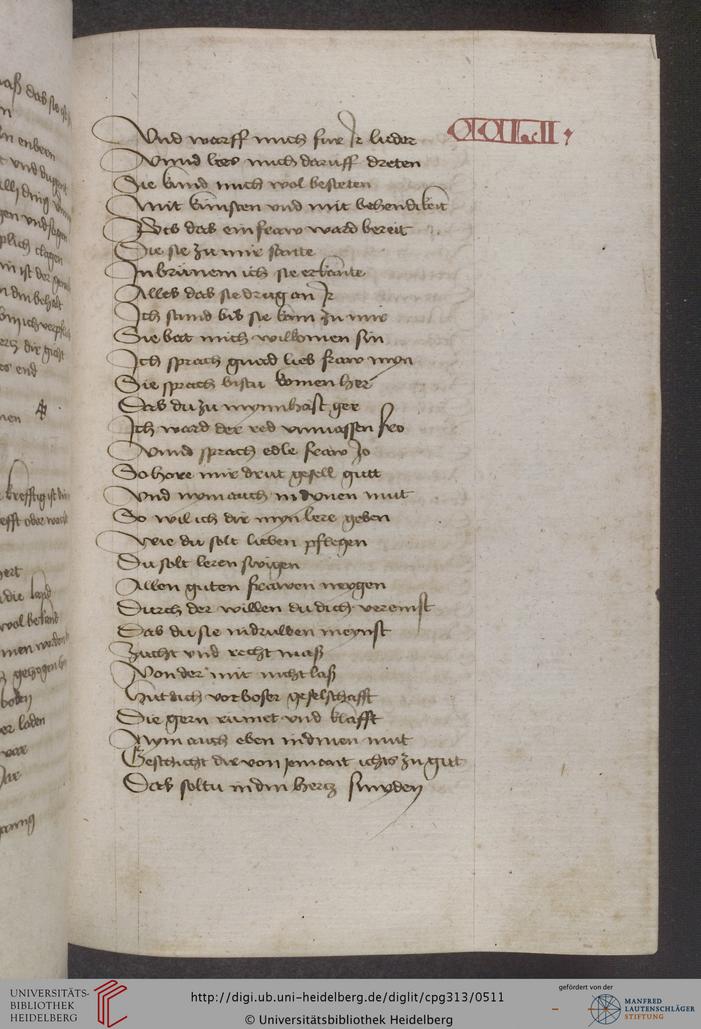 Vnd warff mich fur Ir lieder
Vnnd lies mich daruff dreten
Sie kund mich wol besteten
Mit kunsten vnd mit behendikeit
Bis das ein fraw ward bereit
Die sie zu mir sante
In brunem ich sie erkante
Alles das sie drug an Ir
Ich stund bis sie kam zu mir
Sie bat mich wilkomen sin
Ich sprach gnad lieb fraw myn
Sie sprach bistu komen her
Das du zu mynn hast ger
Ich ward der red vnmassen fro
Vnnd sprach edle fraw Jo
So hore mir drut gesell gutt
Vnd nym auch in dynen mut
So wil ich dir myn lere geben
Wie du solt lieben pflegen
Du solt leren swigen
Allen guten frawen neygen
Durch der willen du dich vereinst
Das du sie in druwen meynst
Zucht vnd recht mass
Von der mit nicht lass
Hut dich vor boser geselschafft
Die gern rumet vnd klafft
Nym auch eben in dinen mut
Geschicht dir von jemant ichts zu gut
Das soltu in din hertz smyden
UNIVERSITÄTS-
BIBLIOTHEK
HEIDELBERG
http://digi.ub.uni-heidelberg.de/diglit/cpg313/0511
© Universitätsbibliothek Heidelberg
gefördert von der
MANFRED
LAUTENSCHLÄGER
STIFTUNG